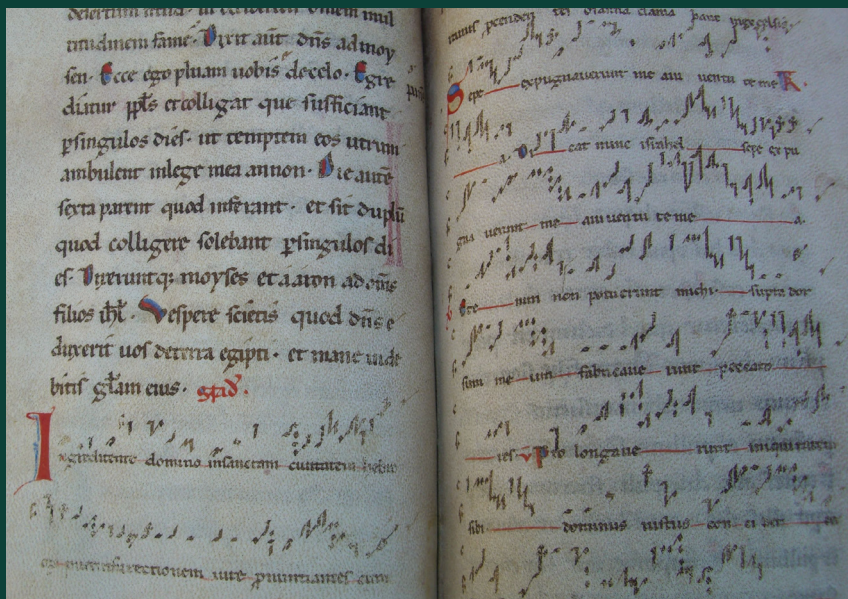 titudinem fame. Dixit aut dns ad moy
sen. Ecce ego pluam uobis de celo. Egre
diatur ppls et colligat que sufficiant
p singulos dies. ut temptem eos utrum
ambulent in lege mea an non. Die aute
sexta parent quod inferant. et sit duplu
quod colligere solebant p singulos di
es. Dixeruntq; moyses et aaron ad oms
filios isrl. Vespere scietis quod dns e
duxerit uos de terra egipti. et mane uide
bitis glam eius. 
Ingrediente domino in sanctam ciuitatem hebre
orum pueri resurrectionem uite pnuntiantes cum
Sepe expugnauerunt me a iuuentute mea R.
V. Dicat nunc israhel sepe expu
gnauerunt me a iuuentute mea
Ete nim non potuerunt michi supra dor
sum me um fabricaue runt peccato
res V. Pro longaue runt iniquitatem
sibi dominus iustus con ci det